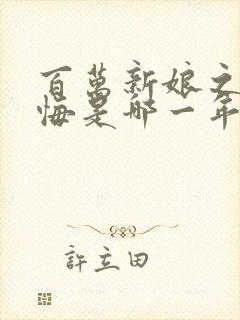 百萬新娘之
悔是哪一年
許立田